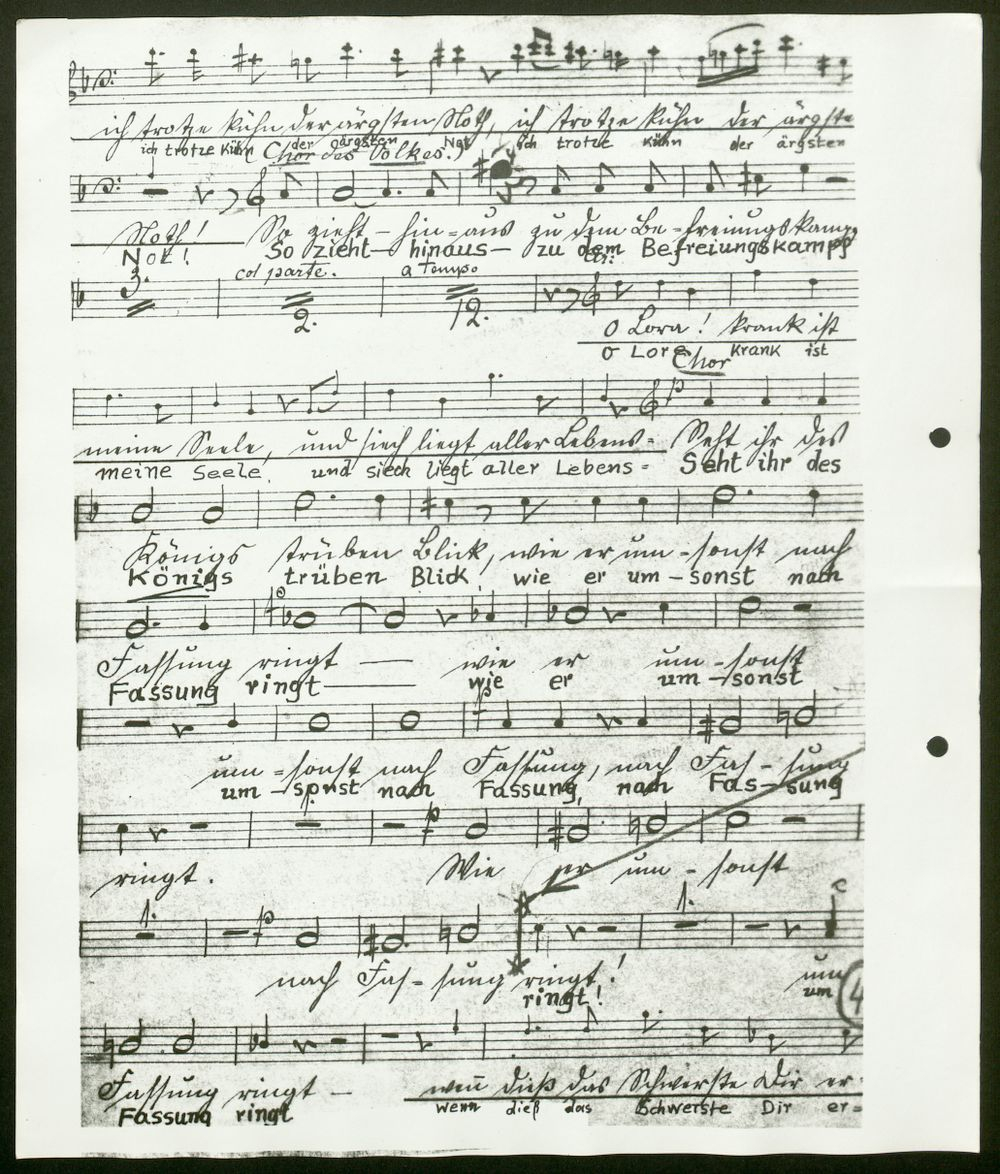 ich trotze kühn der ärgsten Noth, ich trotze kühn der ärgsten
ich trotze kühn der ärgsten Not ich trotze kühn der ärgsten
(Chor des Volkes.)
Noth! So zieht - hin = aus zu dem Be = freiungskampf
Not! So zieht — hinaus — zu dem Befreiungskampf
3. col parte. a Tempo
2. 12.
O Lora! krank ist
O Lora krank ist
Chor
meine Seele, und siech liegt aller Lebens = Seht ihr des
meine Seele, und siech liegt aller Lebens = Seht ihr des
Königs trüben Blick, wie er um - sonst nach
Königs trüben Blick, wie er um - sonst nach
Fassung ringt — wie er um - sonst
Fassung ringt — wie er um - sonst
um = sonst nach Fassung, nach Fas - sung
um - sonst nach Fassung, nach Fas - sung
1.
ringt. Wie er um - sonst
1. 1.
nach Fas - sung ringt! um
ringt! um
4
Fassung ringt — wenn dieß das Schwerste Dir er-
Fassung ringt wenn dieß das Schwerste Dir er=